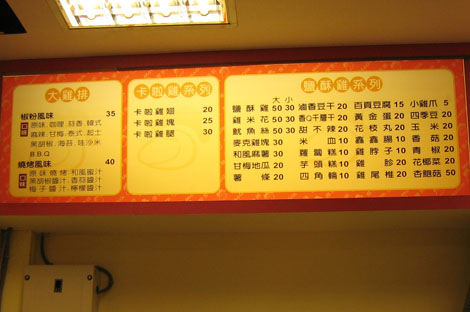 大雞排
椒粉風味 35
口味
原味.咖哩.蒜香.韓式
麻辣.甘梅.泰式.起士
黑胡椒.海苔.哇沙米
B.B.Q
燒烤風味 40
口味
原味燒烤.和風蜜汁
黑胡椒醬汁.香蒜醬汁
梅子醬汁.檸檬醬汁
卡啦雞系列
卡啦雞翅 20
卡啦雞塊 25
卡啦雞腿 30
鹽酥雞系列
大 小
鹽酥雞 50 30 滷香豆干 20 百頁豆腐 15 小雞爪 5
雞米花 50 30 香Q千層干 20 黃金蛋 20 四季豆 20
魷魚絲 50 30 甜不辣 20 花枝丸 20 玉米 20
麥克雞塊 30 米血 10 鑫鑫腸 10 香菇 20
和風麻薯 30 蘿蔔糕 10 雞脖子 10 青椒 20
甘梅地瓜 20 芋頭糕 10 雞胗 20 花椰菜 20
薯條 20 四角輪 10 雞尾椎 20 杏鮑菇 50